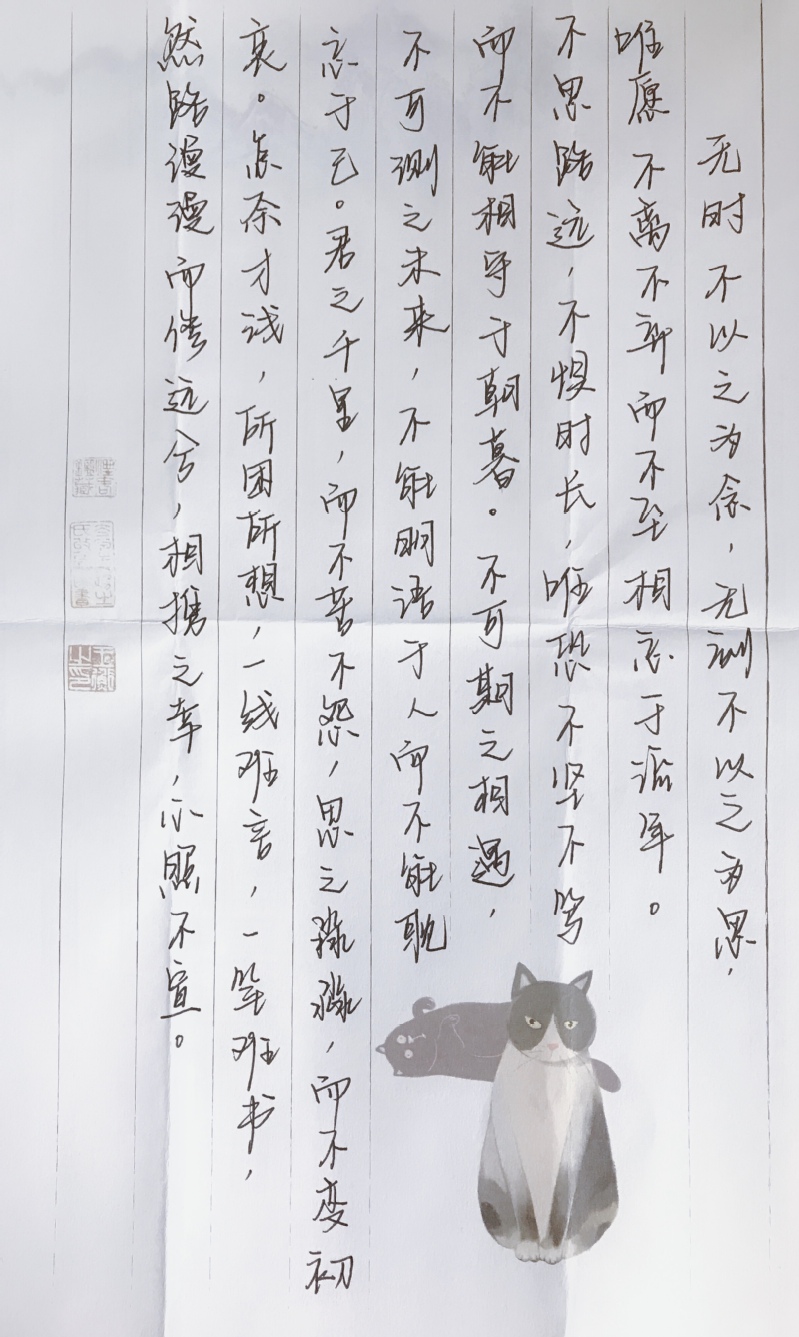 无时不以之为念，无刻不以之为思，
唯愿不离不弃而不至相忘于流年。
不思路远，不惧时长，唯恐不坚不笃
而不能相守于朝暮。不可期之相遇，
不可测之未来，不能明语于人而不能耽
忘于己。君之千里，而不苦不怨，思之深深，而不变初
衷。怎奈才浅，所困所想，一线难言，一笔难书，
然路漫漫而修远兮，相携之幸，心照不宣。